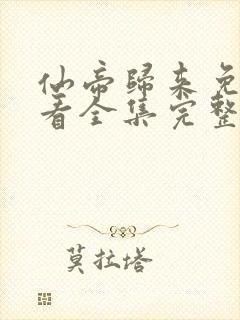 仙帝歸來免
看全集完整
莫拉塔